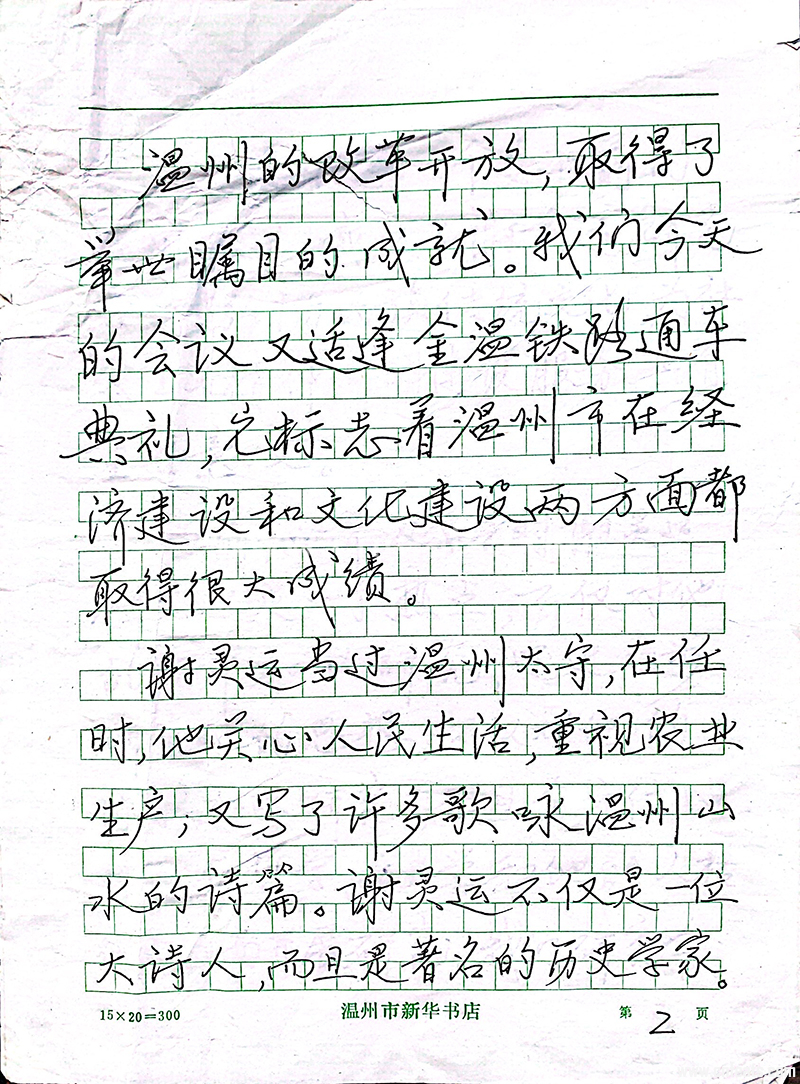 温州的改革开放，取得了
举世瞩目的成就。我们今天
的会议又适逢金温铁路通车
典礼，它标志着温州市在经
济建设和文化建设两方面都
取得很大成绩。
谢灵运当过温州太守，在任
时，他关心人民生活，重视农业
生产，又写了许多歌咏温州山
水的诗篇。谢灵运不仅是一位
大诗人，而且是著名的历史学家。
15×20=300 温州市新华书店 第 2 页